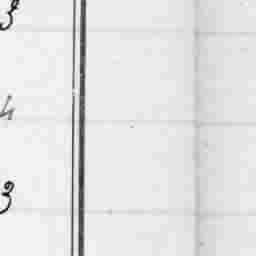 3
4
3